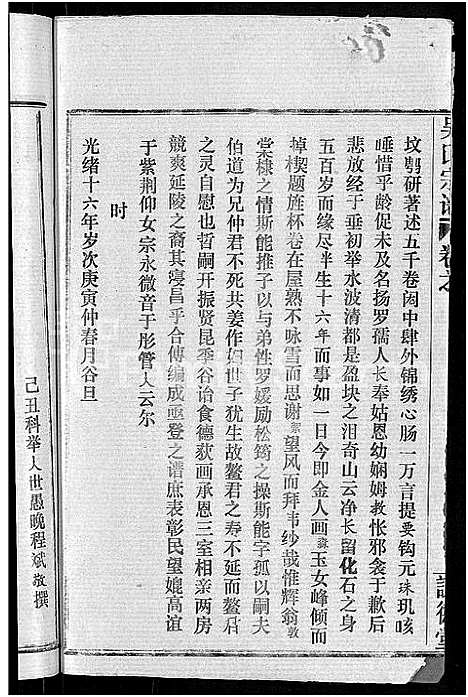 坟鸮研著述五千卷闳中肆外锦绣心肠一万言提要钩元珠玑咳
唾惜乎龄促未及名扬罗孺人长奉姑恩幼娴姆教怅邪衾于歉后
悲放经于垂初举水波清都是盈块之泪奇山云净长留化石之身
五百岁而缘尽半生十六年而事如一日今即金人画 玉女峰倾而
棹楔题旌杯卷在屋熟不咏雪而思谢 望风而拜韦纱哉惟辉翁敦
棠棣之情斯能推子以与弟性罗媛励松筠之操斯能字孤以嗣夫
伯道为兄仲君不死共姜作妇世子犹生故鳌君之寿不延而鳌君
之灵自慰也哲嗣开振贤昆季谷诒食德荻画承恩三室相亲两房
竞爽延陵之裔其寖昌乎合傅编成亟登之谱庶表彰民望媲高谊
于紫荆仰女宗永微音于彤管人云尔
时
光绪十六年岁次庚寅仲春月谷旦
己丑科举人世愚晚程斌敬撰
吴氏宗谱
卷之